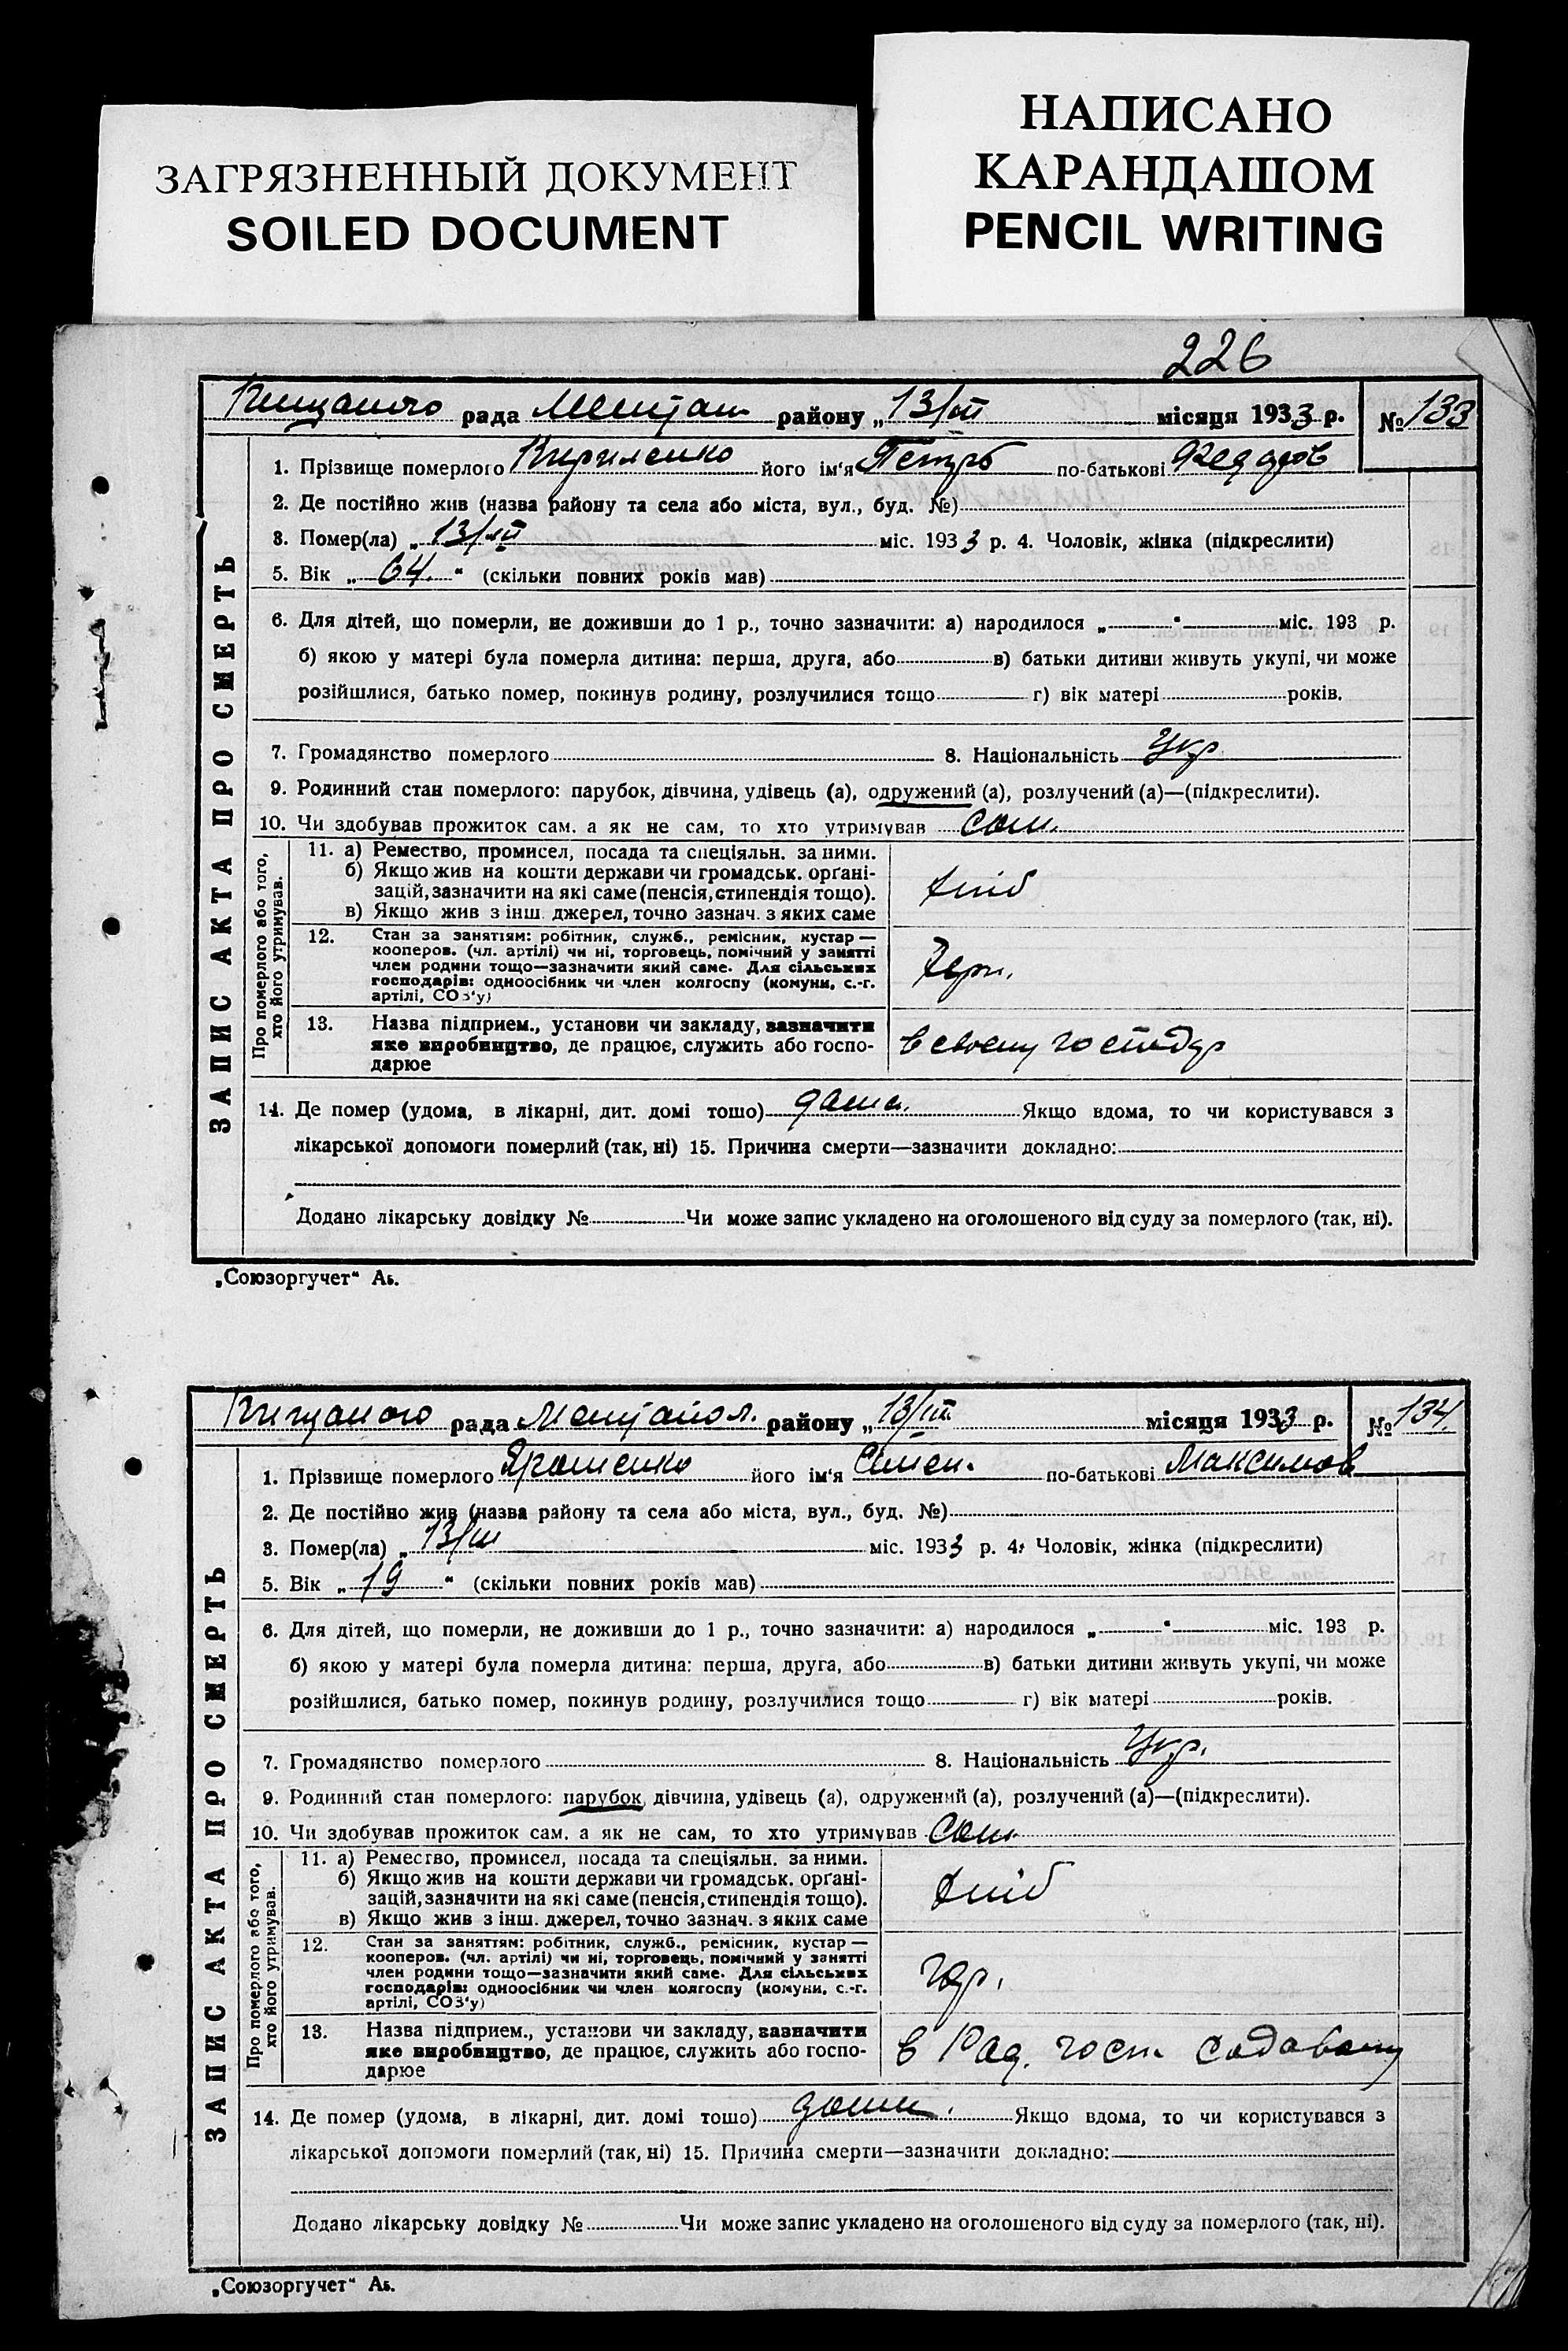 НАПИСАНО
КАРАНДАШОМ
PENCIL WRITING
ЗАГРЯЗНЕННЫЙ ДОКУМЕНТ
SOILED DOCUMENT
226
рада района „13/III місяця 1933 р. № 133
ЗАПИС АКТА ПРО СМЕРТЬ
1. Прізвище померлого Кириленко його ім'я Петро по-батькові Федоров
2. Де постійно жив (назва району та села або міста, вул., буд. №)
3. Помер(ла) „13/III міс. 1933 р. 4. Чоловік, жінка (підкреслити)
5. Вік „64." (скільки повних років мав)
6. Для дітей, що померли, не доживши до 1 р., точно зазначити: а) народилося „ " міс. 193 р.
б) якою у матері була померла дитина: перша, друга, або в) батьки дитини живуть укупі, чи може
розійшлися, батько помер, покинув родину, розлучилися тощо г) вік матері років.
7. Громадянство померлого 8. Національність Укр
9. Родинний стан померлого: парубок, дівчина, удівець (а), одружений (а), розлучений (а)—(підкреслити).
10. Чи здобував прожиток сам, а як не сам, то хто утримував Сам.
Про померлого або того,
хто його утримував.
11. а) Ремество, промисел, посада та спеціяльн. за ними.
б) Якщо жив на кошти держави чи громадськ. органі-
зацій, зазначити на які саме (пенсія, стипендія тощо).
в) Якщо жив з інш. джерел, точно зазнач. з яких саме
хліб
12. Стан за заняттям: робітник, служб., ремісник, кустар —
кооперов. (чл. артілі) чи ні, торговець, помічний у занятті
член родини тощо—зазначити який саме. Для сільських
господарів: одноосібник чи член колгоспу (комуни, с.-г.
артілі, СОЗ'у)
13. Назва підприєм., установи чи закладу, зазначити
яке виробництво, де працює, служить або госпо-
дарюе
в своему господар
14. Де помер (удома, в лікарні, дит. домі тошо) дома. Якщо вдома, то чи користувався з
лікарської допомоги померлий (так, ні) 15. Причина смерти—зазначити докладно:
Додано лікарську довідку № Чи може запис укладено на оголошеного від суду за померлого (так, ні).
„Союзоргучет" Аь.
рада района „13/III місяця 1933 р. № 134
ЗАПИС АКТА ПРО СМЕРТЬ
1. Прізвище померлого Ярошенко його ім'я Семен. по-батькові Максимов
2. Де постійно жив (назва району та села або міста, вул., буд. №)
3. Помер(ла) „13/III міс. 1933 р. 4. Чоловік, жінка (підкреслити)
5. Вік „19" (скільки повних років мав)
6. Для дітей, що померли, не доживши до 1 р., точно зазначити: а) народилося „ " міс. 193 р.
б) якою у матері була померла дитина: перша, друга, або в) батьки дитини живуть укупі, чи може
розійшлися, батько помер, покинув родину, розлучилися тощо г) вік матері років.
7. Громадянство померлого 8. Національність Укр.
9. Родинний стан померлого: парубок, дівчина, удівець (а), одружений (а), розлучений (а)—(підкреслити).
10. Чи здобував прожиток сам, а як не сам, то хто утримував Сам
Про померлого або того,
хто його утримував.
11. а) Ремество, промисел, посада та спеціяльн. за ними.
б) Якщо жив на кошти держави чи громадськ. органі-
зацій, зазначити на які саме (пенсія, стипендія тощо).
в) Якщо жив з інш. джерел, точно зазнач. з яких саме
хліб
12. Стан за заняттям: робітник, служб., ремісник, кустар —
кооперов. (чл. артілі) чи ні, торговець, помічний у занятті
член родини тощо—зазначити який саме. Для сільських
господарів: одноосібник чи член колгоспу (комуни, с.-г.
артілі, СОЗ'у)
13. Назва підприєм., установи чи закладу, зазначити
яке виробництво, де працює, служить або госпо-
дарюе
в Рад. госп.
14. Де помер (удома, в лікарні, дит. домі тошо) дома. Якщо вдома, то чи користувався з
лікарської допомоги померлий (так, ні) 15. Причина смерти—зазначити докладно:
Додано лікарську довідку № Чи може запис укладено на оголошеного від суду за померлого (так, ні).
„Союзоргучет" Аь.